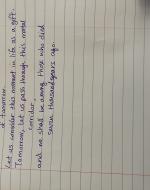 of tomorrow.
Let us consider this moment in life as a gift.
Tomorrow, let us pass through this motel
corridor,
and we shall be among those who died
seven thousand years ago.